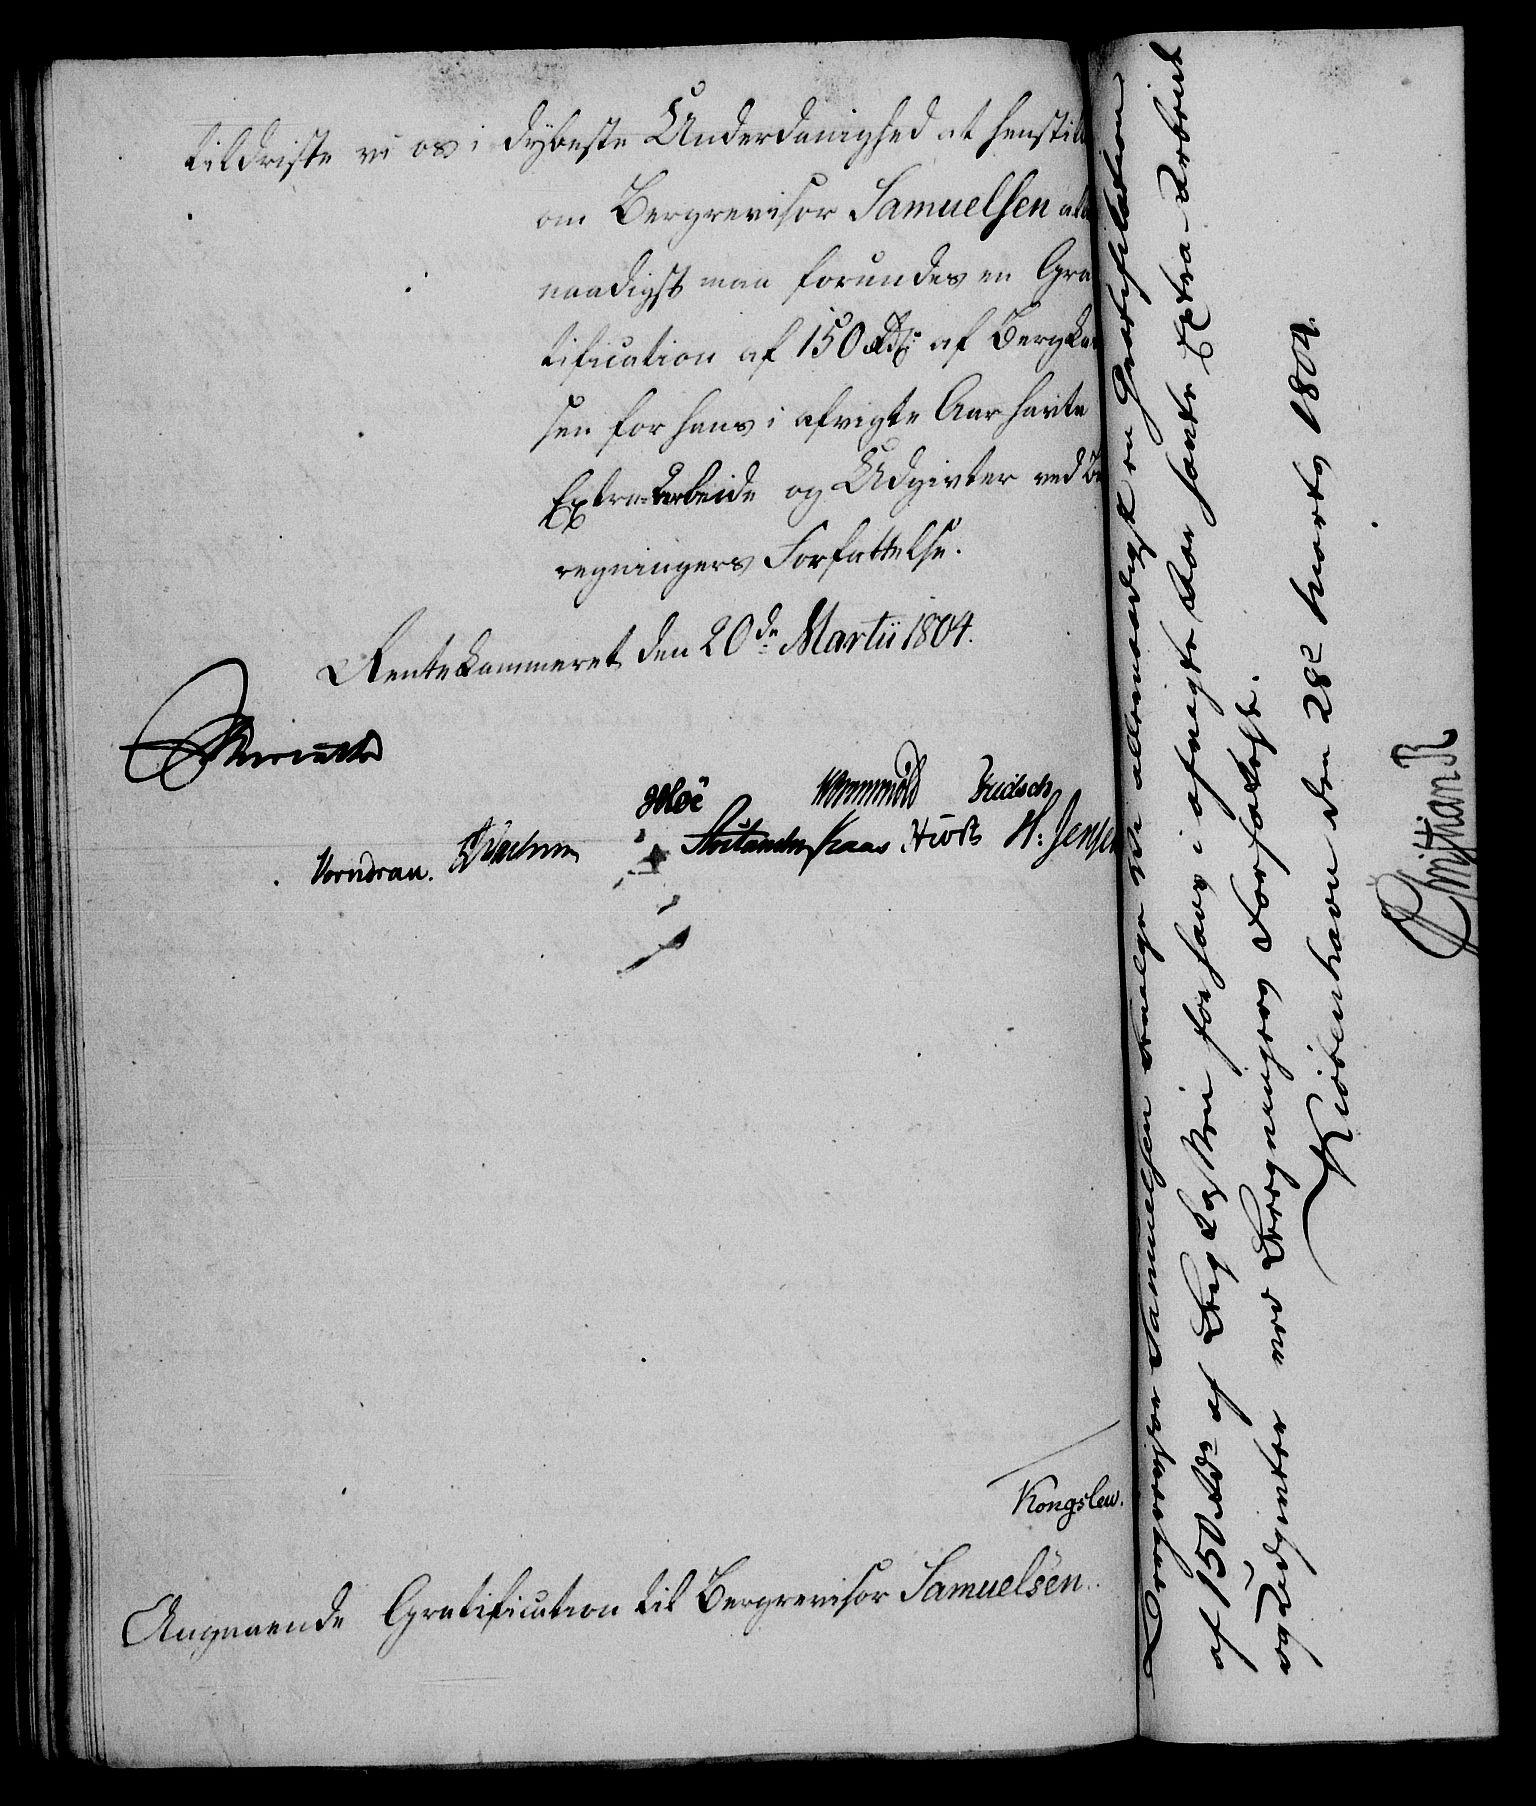 tildriste vi os i dybeste Underdanighed at henstil
om Bergrevisor Samuelsen al
naadigst maa forundes en Gra
tification af 150 Rd: af Bergkas
sen for hans i afvigte Aar havte
Extra-Arbeide og Udgivter ved Be
regningers Forfattelse.
Rentekammeret den 20de Martii 1804.
Hoë Wormskiold Fridsch
Vorndran. Kaas Hiort H: Jensen
Kongslew.
Angaaende Gratification til Bergrevisor Samuelsen.
Bergrevisor Samuelsen maa allernaadigst en Gratification
af 150 Rdr af Bergkassen for hans i afvigte Aar havte Extra-Arbeide
og Udgivter ved Beregningers Forfattelse.
Kiøbenhavn den 28de Marty 1804.
Christian R